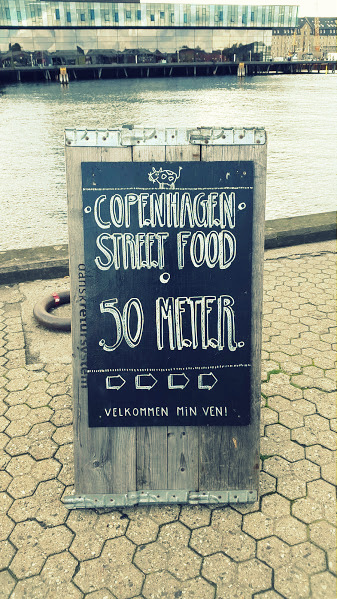 COPENHAGEN
STREET FOOD
50 METER
VELKOMMEN MIN VEN!